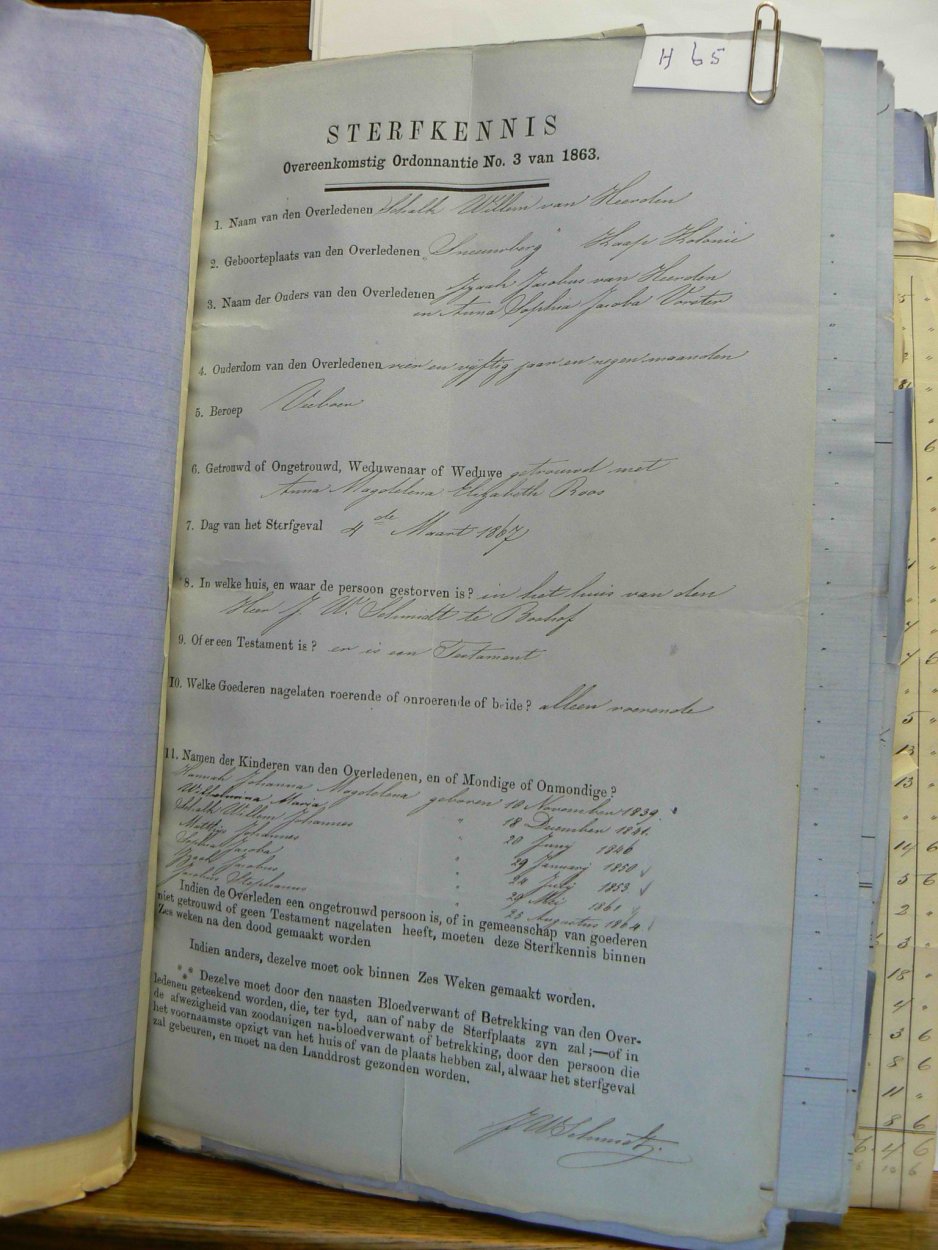 H 65
STERFKENNIS
Overeenkomstig Ordonnantie No. 3 van 1863.
1. Naam van den Overledenen Schalk Willem van Heerden
2. Geboorteplaats van den Overledenen „Sneeuwberg" Kaap Kolonie
3. Naam der Ouders van den Overledenen Izaak Jacobus van Heerden
en Anna Sophia Jacoba Vorster
4. Ouderdom van den Overledenen vier en vyftig jaar en negen maanden
5. Beroep Veeboer
6. Getrouwd of Ongetrouwd, Weduwenaar of Weduwe getrouwd met
Anna Magdelena Elizabeth Roos
7. Dag van het Sterfgeval 4de Maart 1867
8. In welke huis, en waar de persoon gestorven is? in het huis van den
Heer J. W. Schmidt te Boshof
9. Of er een Testament is? er is een Testament
10. Welke Goederen nagelaten roerende of onroerende of beide? alleen roerende
11. Namen der Kinderen van den Overledenen, en of Mondige of Onmondige?
Hannah Johanna Magdelena geboren 10 November 1839
Wilhelmina Maria " 18 December 1841
Schalk Willem Johannes " 20 Juny 1846
Matthys Johannes " 29 January 1850
Sophia Jacoba " 24 July 1853
Izaak Jacobus " 29 Mei 1861
Jacobus Stephanus " 25 Augustus 1864
Indien de Overleden een ongetrouwd persoon is, of in gemeenschap van goederen
niet getrouwd of geen Testament nagelaten heeft, moeten deze Sterfkennis binnen
Zes weken na den dood gemaakt worden
Indien anders, dezelve moet ook binnen Zes Weken gemaakt worden.
*** Dezelve moet door den naasten Bloedverwant of Betrekking van den Over-
ledenen geteekend worden, die, ter tyd, aan of naby de Sterfplaats zyn zal;—of in
de afwezigheid van zoodanigen na-bloedverwant of betrekking, door den persoon die
het voornaamste opzigt van het huis of van de plaats hebben zal, alwaar het sterfgeval
zal gebeuren, en moet na den Landdrost gezonden worden.
J W Schmidt